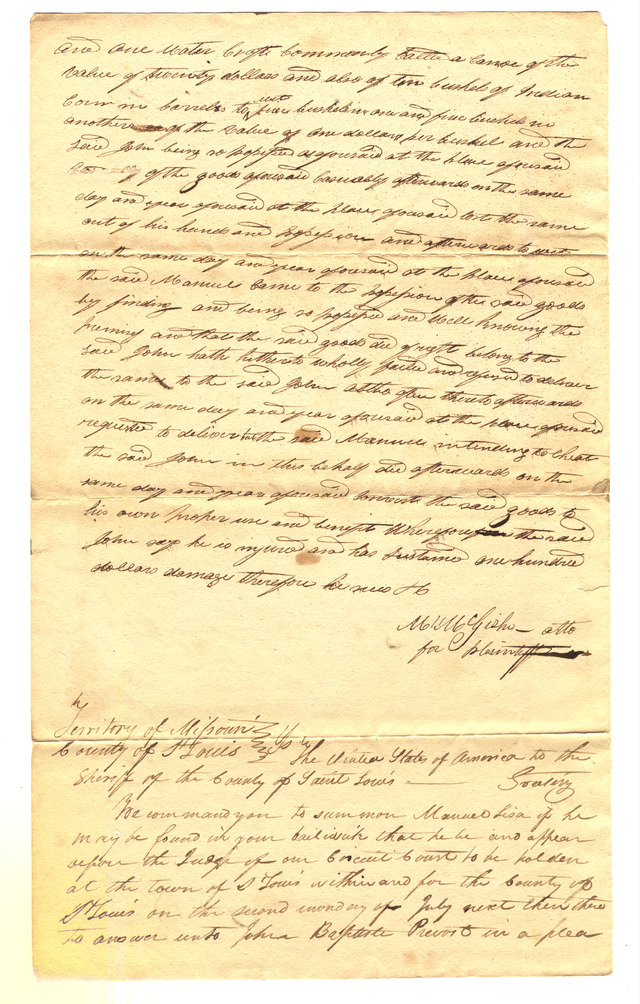 and one water craft commonly called a Canoe of the
value of twenty dollars and also of ten bushels of Indian
Corn in barrels to wit five bushels in one and five bushels in
another of the value of one dollar per bushel and the
said John being so possessed as aforesaid at the place aforesaid
of the goods aforesaid Casually afterwards on the same
day and year aforesaid at the place aforesaid lost the same
out of his hands and possession and afterwards to wit
on the same day and year aforesaid at the place aforesaid
the said Manuel Came to the possession of the said goods
by finding and being so possessed and well knowing the
premises and that the said goods did of right belong to the
said John hath hitherto wholly failed and refused to deliver
the same to the said John altho often thereto afterwards
on the same day and year aforesaid at the place aforesaid
requested to deliver but the said Manuel intending to cheat
the said John in this behalf did afterwards on the
same day and year aforesaid Convert the said goods to
his own proper use and benefit Wherefore the said
John says he is injured and has Sustained one hundred
dollars damage therefore he sues &c
atto
for plaintiff
Territory of Missouri
County of St Louis The United States of America to the
Sheriff of the County of Saint Louis Greeting
We command you to summon Manuel Lisa if he
may be found in your bailiwick that he be and appear
before the Judge of our Circuit Court to be holden
at the town of St Louis within and for the County of
St Louis on the second monday of July next then there
to answer unto John Baptiste Prevost in a plea